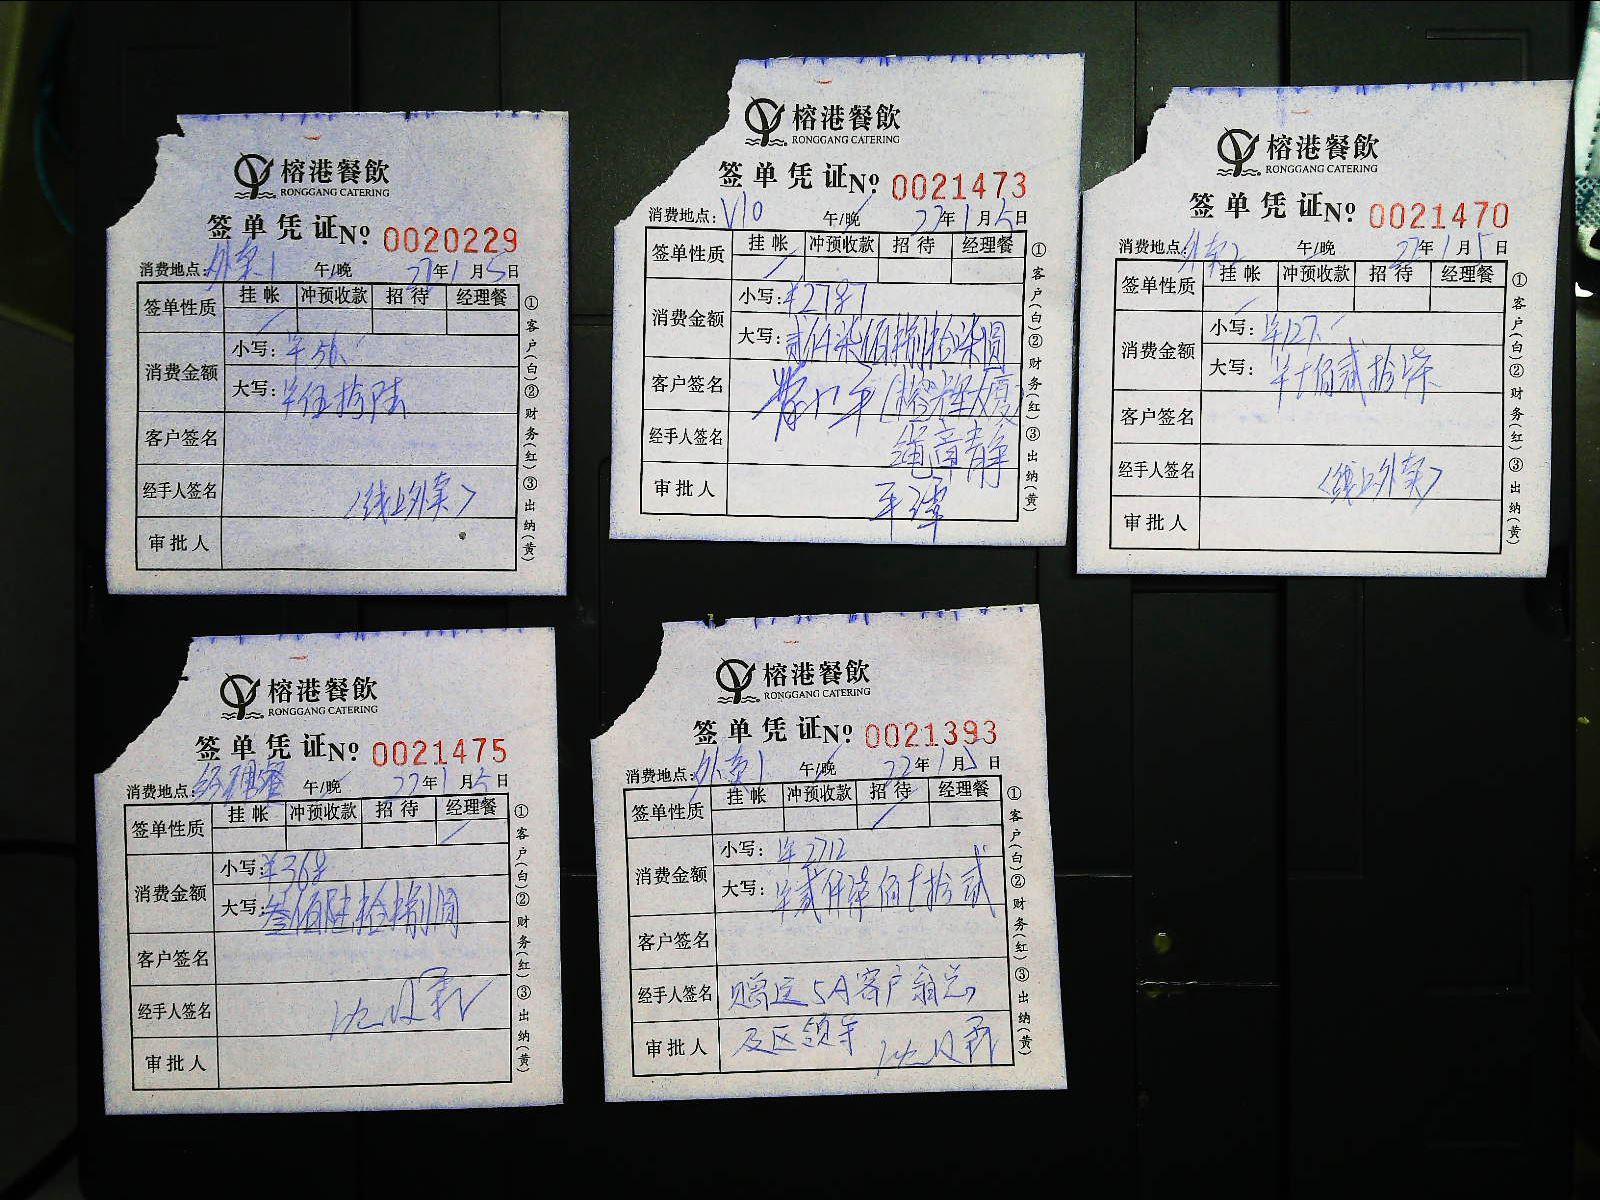 榕港餐飲
RONGGANG CATERING
签单凭证No 0020229
消费地点:外卖1 午/晚 22年1月5日
签单性质 挂帐 冲预收款 招待 经理餐
消费金额 小写:¥56.
大写:¥伍拾陆
客户签名
经手人签名 <线上外卖>
审批人
①客户(白)②财务(红)③出纳(黄)
榕港餐飲
RONGGANG CATERING
签单凭证No 0021473
消费地点:V10 午/晚 22年1月5日
签单性质 挂帐 冲预收款 招待 经理餐
消费金额 小写:¥2787
大写:贰仟柒佰捌拾柒圆
客户签名
经手人签名
审批人
①客户(白)②财务(红)③出纳(黄)
榕港餐飲
RONGGANG CATERING
签单凭证No 0021470
消费地点:外卖2 午/晚 22年1月5日
签单性质 挂帐 冲预收款 招待 经理餐
消费金额 小写:¥127.
大写:¥壹佰贰拾柒
客户签名
经手人签名 <线上外卖>
审批人
①客户(白)②财务(红)③出纳(黄)
榕港餐飲
RONGGANG CATERING
签单凭证No 0021475
消费地点:经理餐 午/晚 22年1月5日
签单性质 挂帐 冲预收款 招待 经理餐
消费金额 小写:¥368
大写:叁佰陆拾捌圆
客户签名
经手人签名
审批人
①客户(白)②财务(红)③出纳(黄)
榕港餐飲
RONGGANG CATERING
签单凭证No 0021393
消费地点:外卖1 午/晚 22年1月5日
签单性质 挂帐 冲预收款 招待 经理餐
消费金额 小写:¥2712
大写:¥贰仟柒佰壹拾贰
客户签名
经手人签名 赠送5A客户翁总
审批人 及区领导
①客户(白)②财务(红)③出纳(黄)